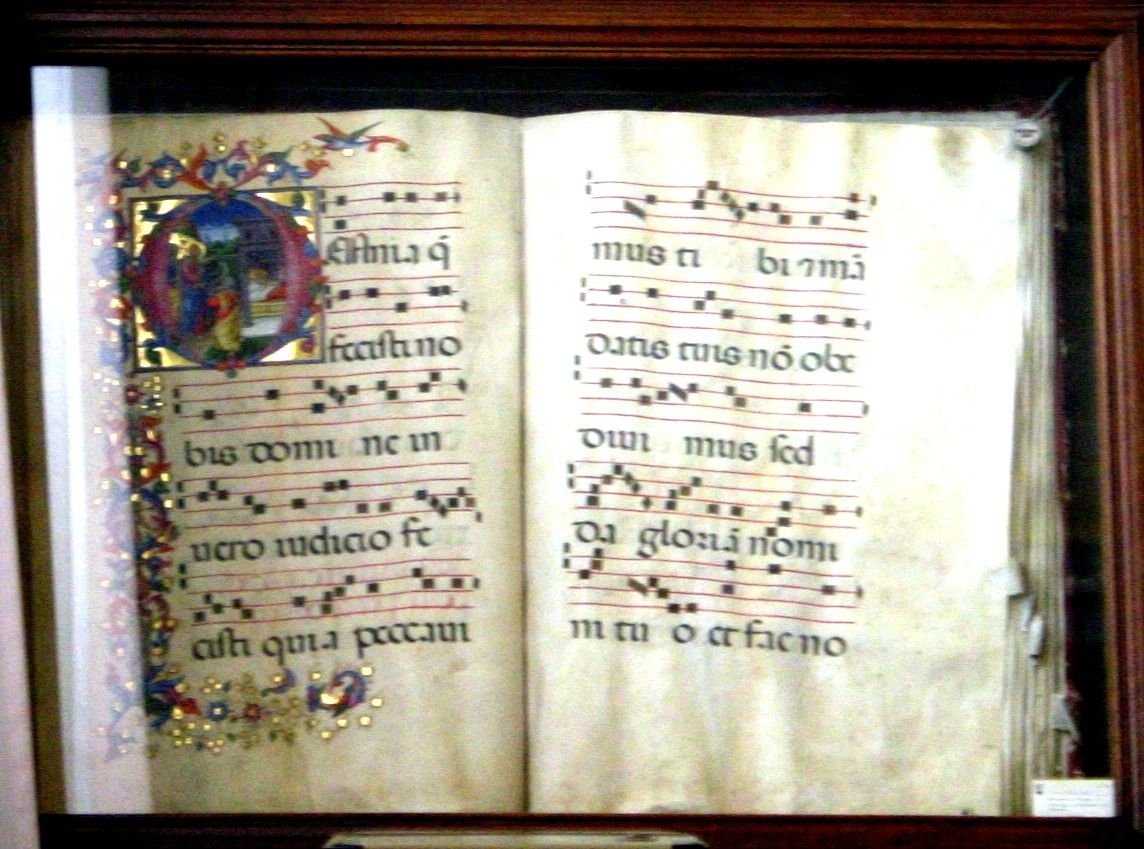 O
mnia q̄
fecisti no
bis domi ne in
uero iudicio fe
cisti quia peccaui
mus ti bi ⁊ mā
datis tuis nō obe
diui mus sed
da gloriā nomi
ni tu o et fac no